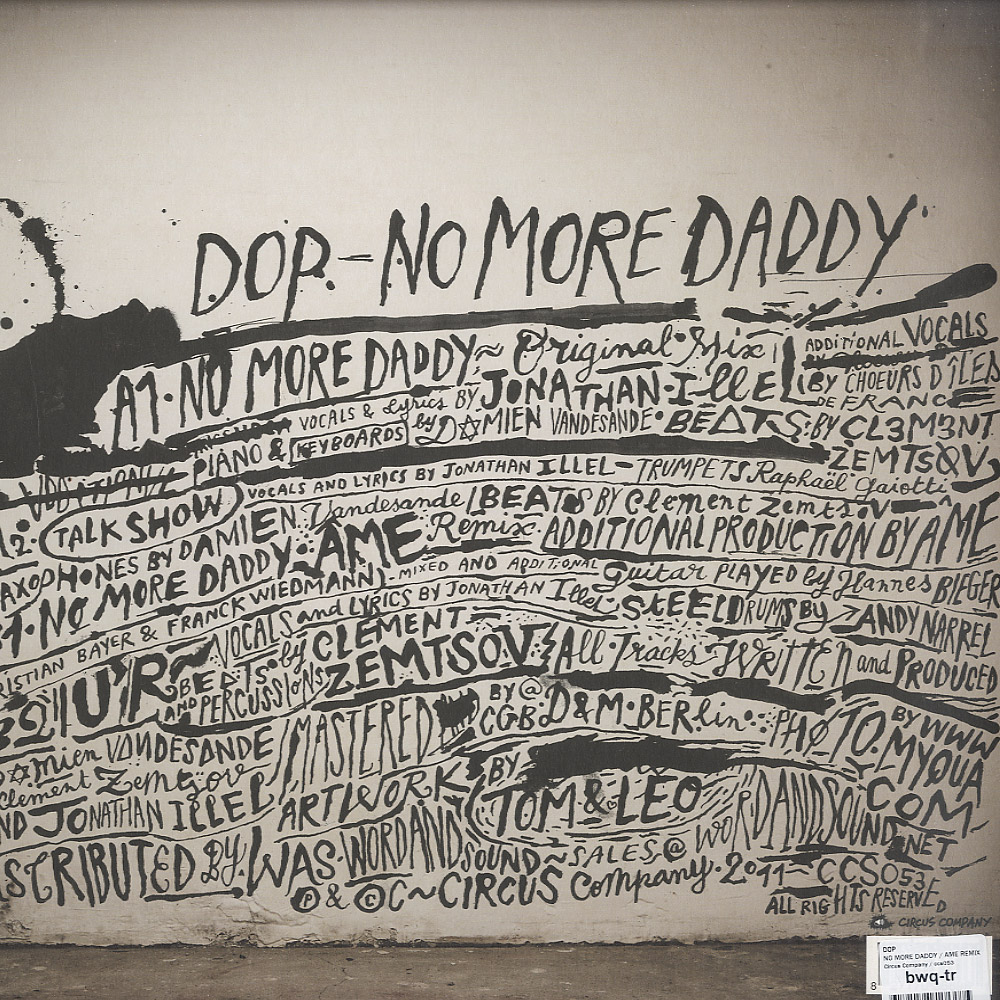 DOP. – NO MORE DADDY
A1. NO MORE DADDY ~ Original Mix | ADDITIONAL VOCALS
BY CHOEURS D'ÎLES
DE FRANCE
VOCALS & Lyrics BY JONATHAN ILLEL
PIANO & KEYBOARDS by D☆MIEN VANDESANDE • BEATS: BY CL3M3NT
ZEMTSOV
2. TALK SHOW VOCALS AND LYRICS BY JONATHAN ILLEL – TRUMPETS Raphaël Gaiotti
AXOPHONES BY DAMIEN Vandesande / BEATS BY Clement Zemtsov
1. NO MORE DADDY. AME Remix ADDITIONAL PRODUCTION BY AME
RISTIAN BAYER & FRANCK WIEDMANN) - MIXED AND ADDITIONAL Guitar PLAYED by Hannes BIEGER
UR VOCALS and LYRICS BY JONATHAN Illel STEELDRUMS BY ANDY NARREL
BEATS by CLEMENT
AND PERCUSSIONS ZEMTSOV All Tracks WRITTEN and PRODUCED
D☆Mien VANDESANDE MASTERED BY @ D&M • BERlin • PHØTO. BY WWW
CGB
MYOUA
Clement Zemtsov
COM
ND JONATHAN ILLEL ARTWORK BY TOM & LÉO
STRIBUTED BY. WAS. WORDANDSOUND ~ SALES @ WORDANDSOUND.NET
℗ & © C ~ CIRCUS Company. 2011 ~ CCS053
ALL RIGHTS RESERVED
CIRCUS COMPANY
DOP
NO MORE DADDY / AME REMIX
Circus Company / ccs053
bwq-tr
8